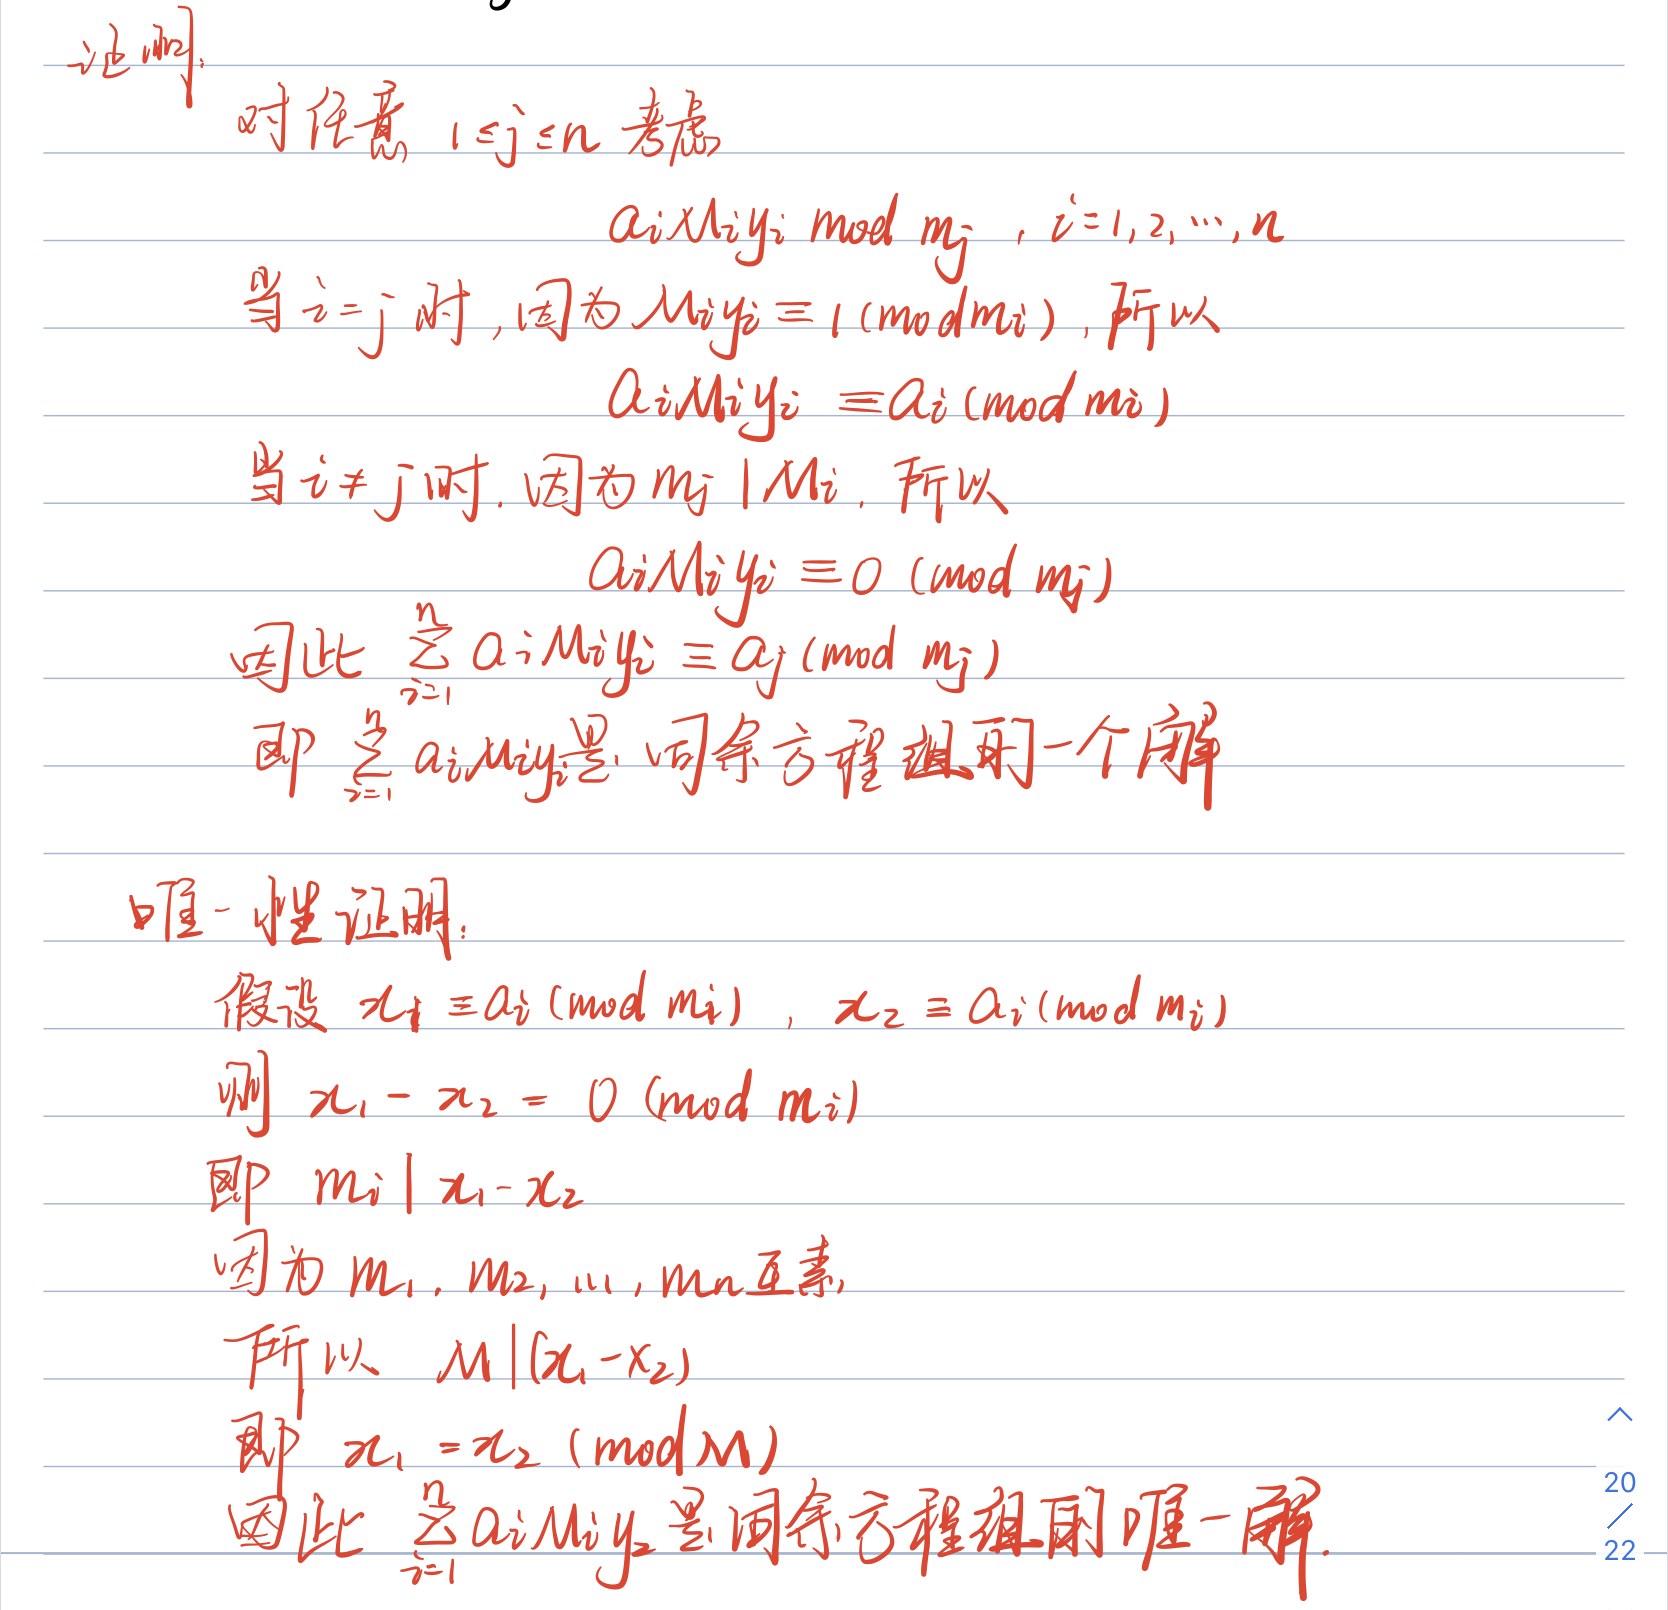 证明:
对任意 1≤j≤n 考虑
aᵢMᵢyᵢ mod mⱼ , i=1,2,…,n
当 i=j 时,因为 Mᵢyᵢ≡1(mod mᵢ),所以
aᵢMᵢyᵢ ≡aᵢ(mod mᵢ)
当 i≠j时,因为 mⱼ|Mᵢ,所以
aᵢMᵢyᵢ≡0 (mod mⱼ)
因此 ∑ⁿᵢ₌₁ aᵢMᵢyᵢ ≡aⱼ(mod mⱼ)
即 ∑ⁿᵢ₌₁ aᵢMᵢyᵢ是同余方程组的一个解
唯一性证明:
假设 x₁≡aᵢ(mod mᵢ) , x₂≡aᵢ(mod mᵢ)
则 x₁-x₂= 0 (mod mᵢ)
即 mᵢ|x₁-x₂
因为 m₁,m₂,…,mₙ互素,
所以 M|(x₁-x₂)
即 x₁=x₂ (mod M)
因此 ∑ⁿᵢ₌₁ aᵢMᵢy₂ 是同余方程组的唯一解.
20
/
22